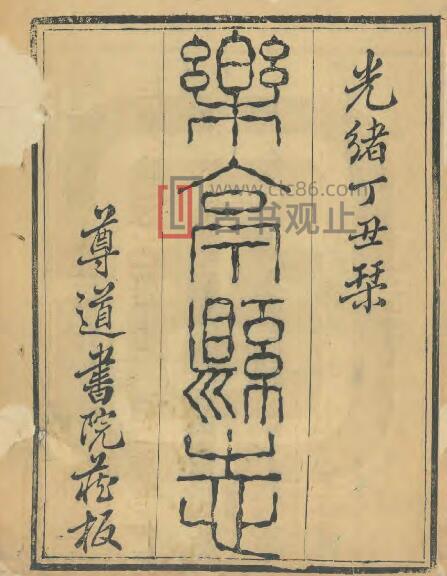 光緒丁丑栞
樂亭縣志
尊道書院藏板
www.ctc86.com
古书观止